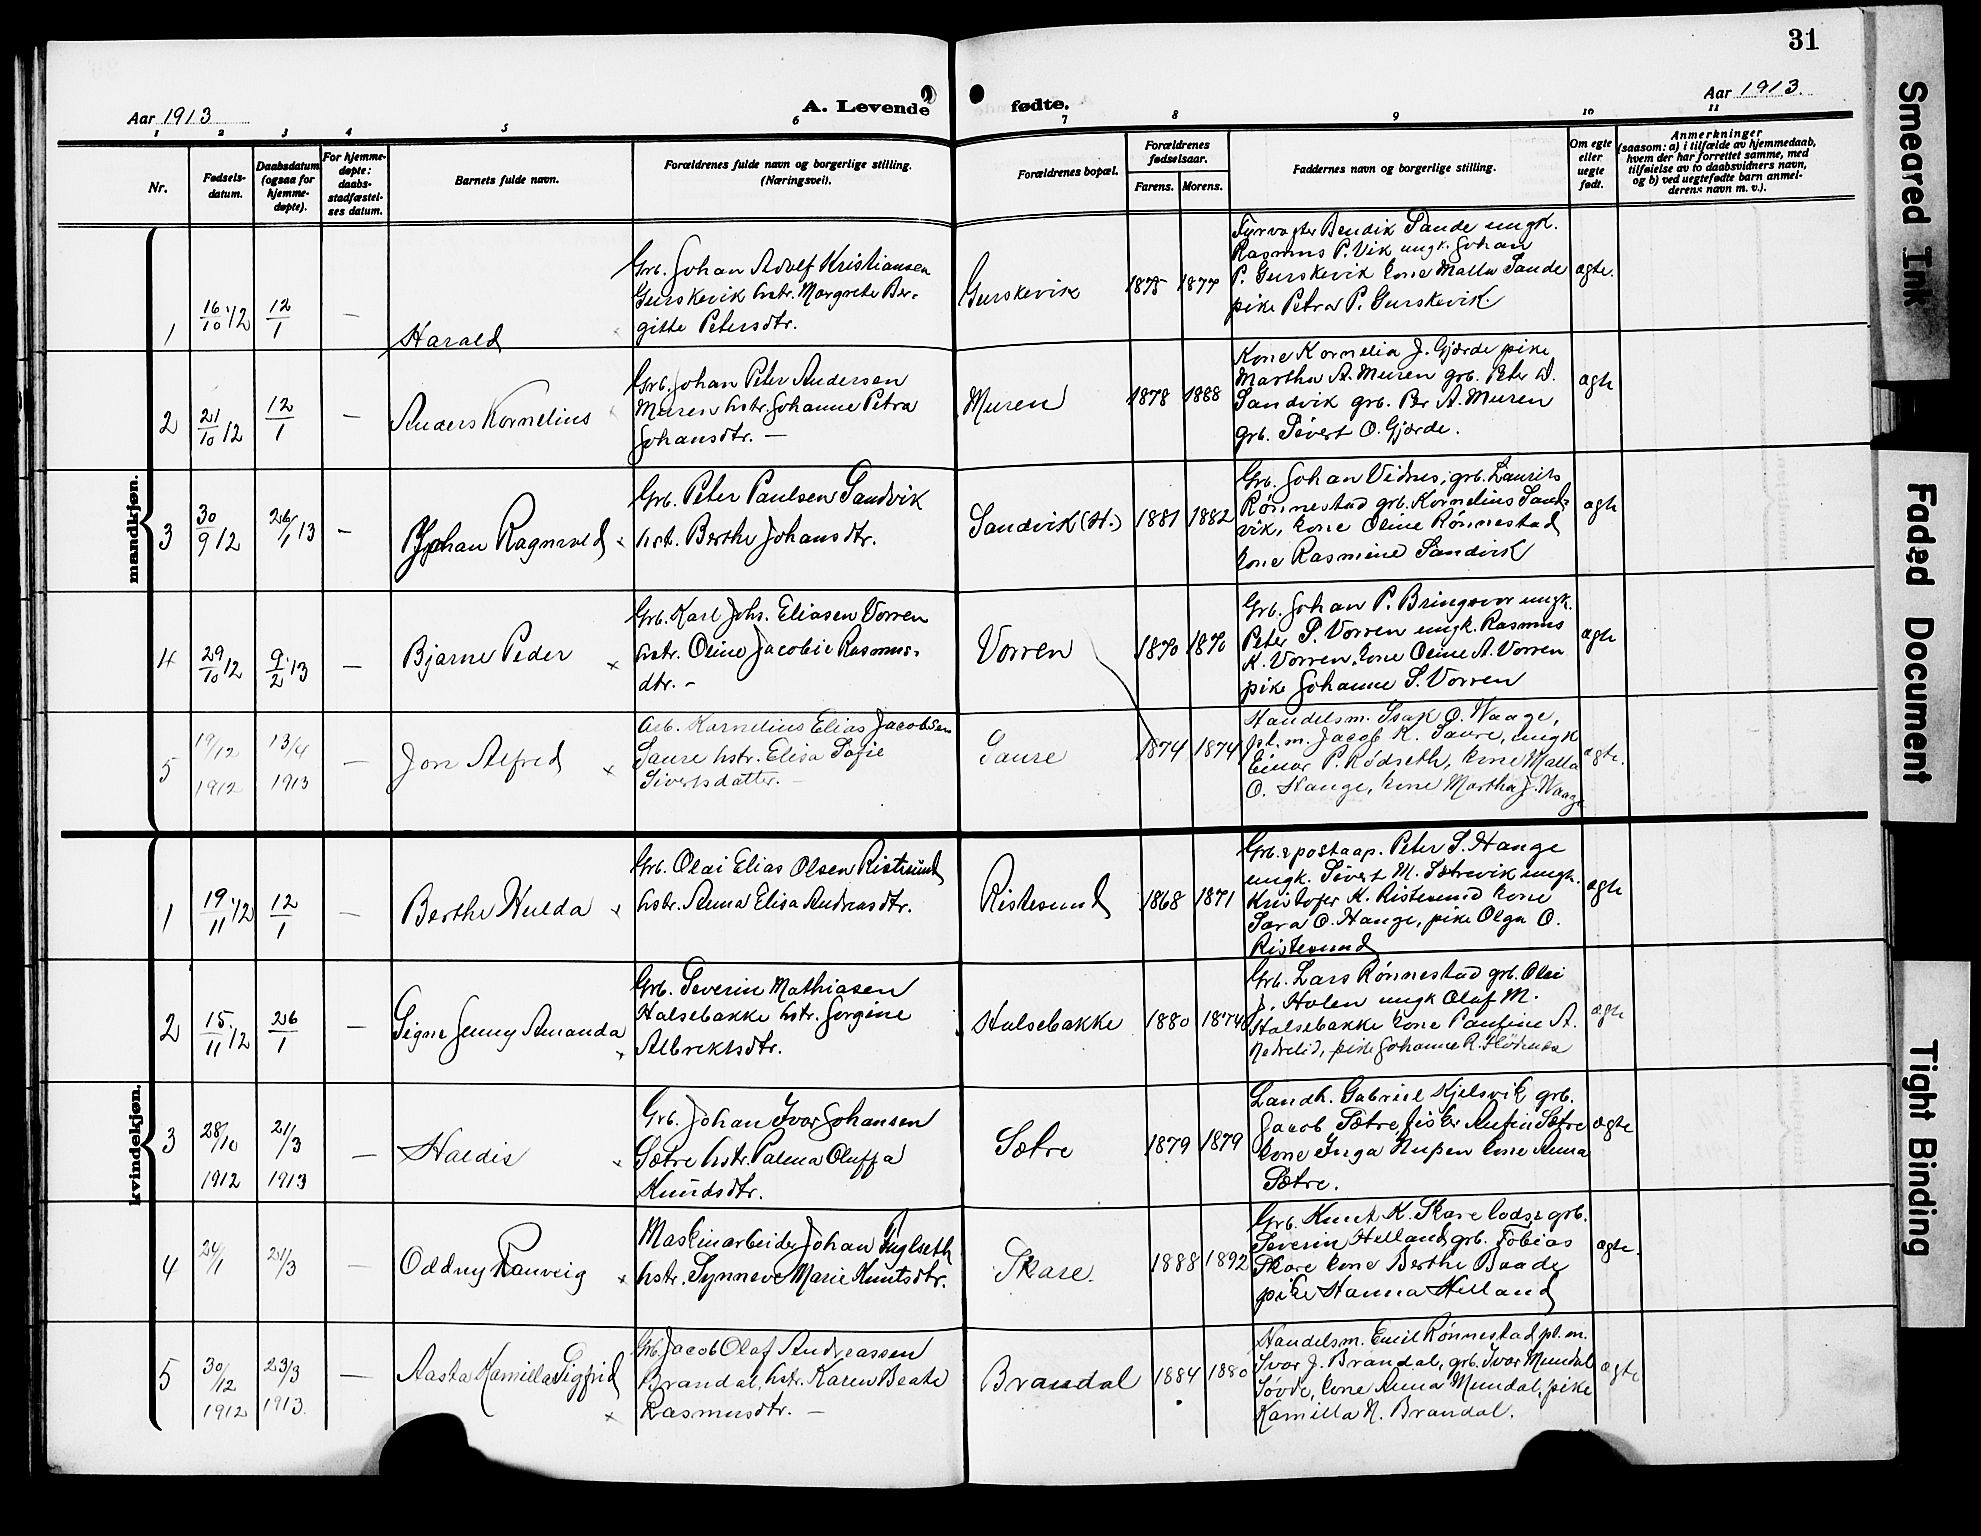 31
Aar 1913
A. Levende fødte.
Aar 1913.
1 2 3 4 5 6 7 8 9 10 11
Nr.
Fødsels-
datum.
Daabsdatum
(ogsaa for
hjemme-
døpte).
For hjemme-
døpte:
daabs-
stadfæstel-
ses datum.
Barnets fulde navn.
Forældrenes fulde navn og borgerlige stilling.
(Næringsvei).
Forældrenes bopæl.
Forældrenes
fødselsaar.
Farens. Morens.
Faddernes navn og borgerlige stilling.
Om egte
eller
uegte
født.
Anmerkninger
(saasom: a) i tilfælde av hjemmedaab,
hvem der har forrettet samme, med
tilføielse av to daabsvidners navn,
og b) ved uegtefødte barn anmel-
derens navn m. v.).
mandkjøn.
1
16/10 12
12/1
—
Harald
Grb. Johan Adolf Kristiansen
Gurskevik hstr. Margrete Ber-
gitte Petersdtr.
Gurskevik
1875 1877
Fyrvogter Bendik Sande ungk.
Rasmus P. Vik ungk. Johan
P. Gurskevik kone Malla Sande
pike Petra P. Gurskevik.
ægte.
2
21/10 12
12/1
—
Anders Kornelius
Grb. Johan Peter Andersen
Muren hstr. Johanne Petra
Johansdtr. —
Muren
1878 1888
Kone Kornelia J. Gjærde pike
Martha A. Muren grb. Peter A.
Sandvik grb. Per A. Muren
grb. Sivert O. Gjærde.
ægte
3
30/9 12
26/1 13
—
Johan Ragnvald
Grb. Peter Paulsen Sandvik
hst. Berthe Johansdtr.
Sandvik (H.)
1881 1882
Grb. Johan Vidnes, grb. Laurits
Rønnestad grb. Kornelius Sand-
vik, kone Oline Rønnestad
kone Rasmine Sandvik
ægte
4
29/10 12
9/2 13
—
Bjarne Peder
Grb. Karl Johs. Eliasen Vorren
hstr. Oline Jacobie Rasmus-
dtr. -
Vorren
1870 1870
Grb. Johan P. Bringsvor ungk.
Peter S. Vorren ungk. Rasmus
K. Vorren, kone Oline A. Vorren
pike Johanne S. Vorren
ægte
5
19/12
1912
13/4
1913
—
Jon Alfred
Arb. Kornelius Elias Jacobsen
Saure hstr. Elisa Sofie
Sivertsdatter. —
Saure
1874 1874
Handelsm. Isak O. Waage,
pl. m. Jacob K. Saure, ungk
Einar P. Rødseth, kone Malla
O. Hauge, kone Martha J. Waage
ægte.
kvindekjøn.
1
19/11 12
12/1
—
Berthe Hulda
Grb. Olai Elias Olsen Ristesund
hstr. Anna Elisa Andreasdtr.
Ristesund
1868 1871
Grb. & postaap. Peter S. Hauge
ungk. Sivert M. Sætrevik ungk.
Kristofer K. Ristesund kone
Sara O. Hauge, pike Olga O.
Ristesund
ægte
2
15/11 12
26/1
—
Signe Jenny Amanda
Grb. Severin Mathiasen
Halsebakke hstr. Jorgine
Albrektsdtr.
Halsebakke
1880 1874
Grb. Lars Rønnestad grb. Olai
J. Holen ungk Olaf M.
Halsebakke kone Pauline A.
Nedrelid, pike Johanne R. Flødnes
ægte
3
28/10
1912
21/3
1913
—
Haldis
Grb. Johan Ivar Johansen
Sætre hstr. Palma Oluffa
Knudsdtr.
Sætre
1879 1879
Landh. Gabriel Kjelsvik grb.
Jacob Sætre, fisker Anfin Sætre
kone Inga Hupen kone Anna
Sætre.
ægte
4
24/1
21/3
—
Oddny Ranveig
Maskinarbeider Johan Fuglseth
hstr. Synneve Marie Knutsdtr.
Skare.
1888 1892
Grb. Knut K. Skare lods & grb.
Severin Helland grb. Tobias
Skare kone Berthe Baade
pike Hanna Helland
ægte.
5
30/12
1912
23/3
1913.
—
Aasta Kamilla Sigfrid
Grb. Jacob Olaf Andreassen
Brandal, hstr. Karen Beate
Rasmusdtr. —
Brandal
1884 1880
Handelsm. Emil Rønnestad pl. m.
Ivar J. Brandal, grb. Ivar Mundal
Søvde, kone Anna Mundal, pike
Kamilla N. Brandal.
ægte
Smeared Ink
Faded Document
Tight Binding